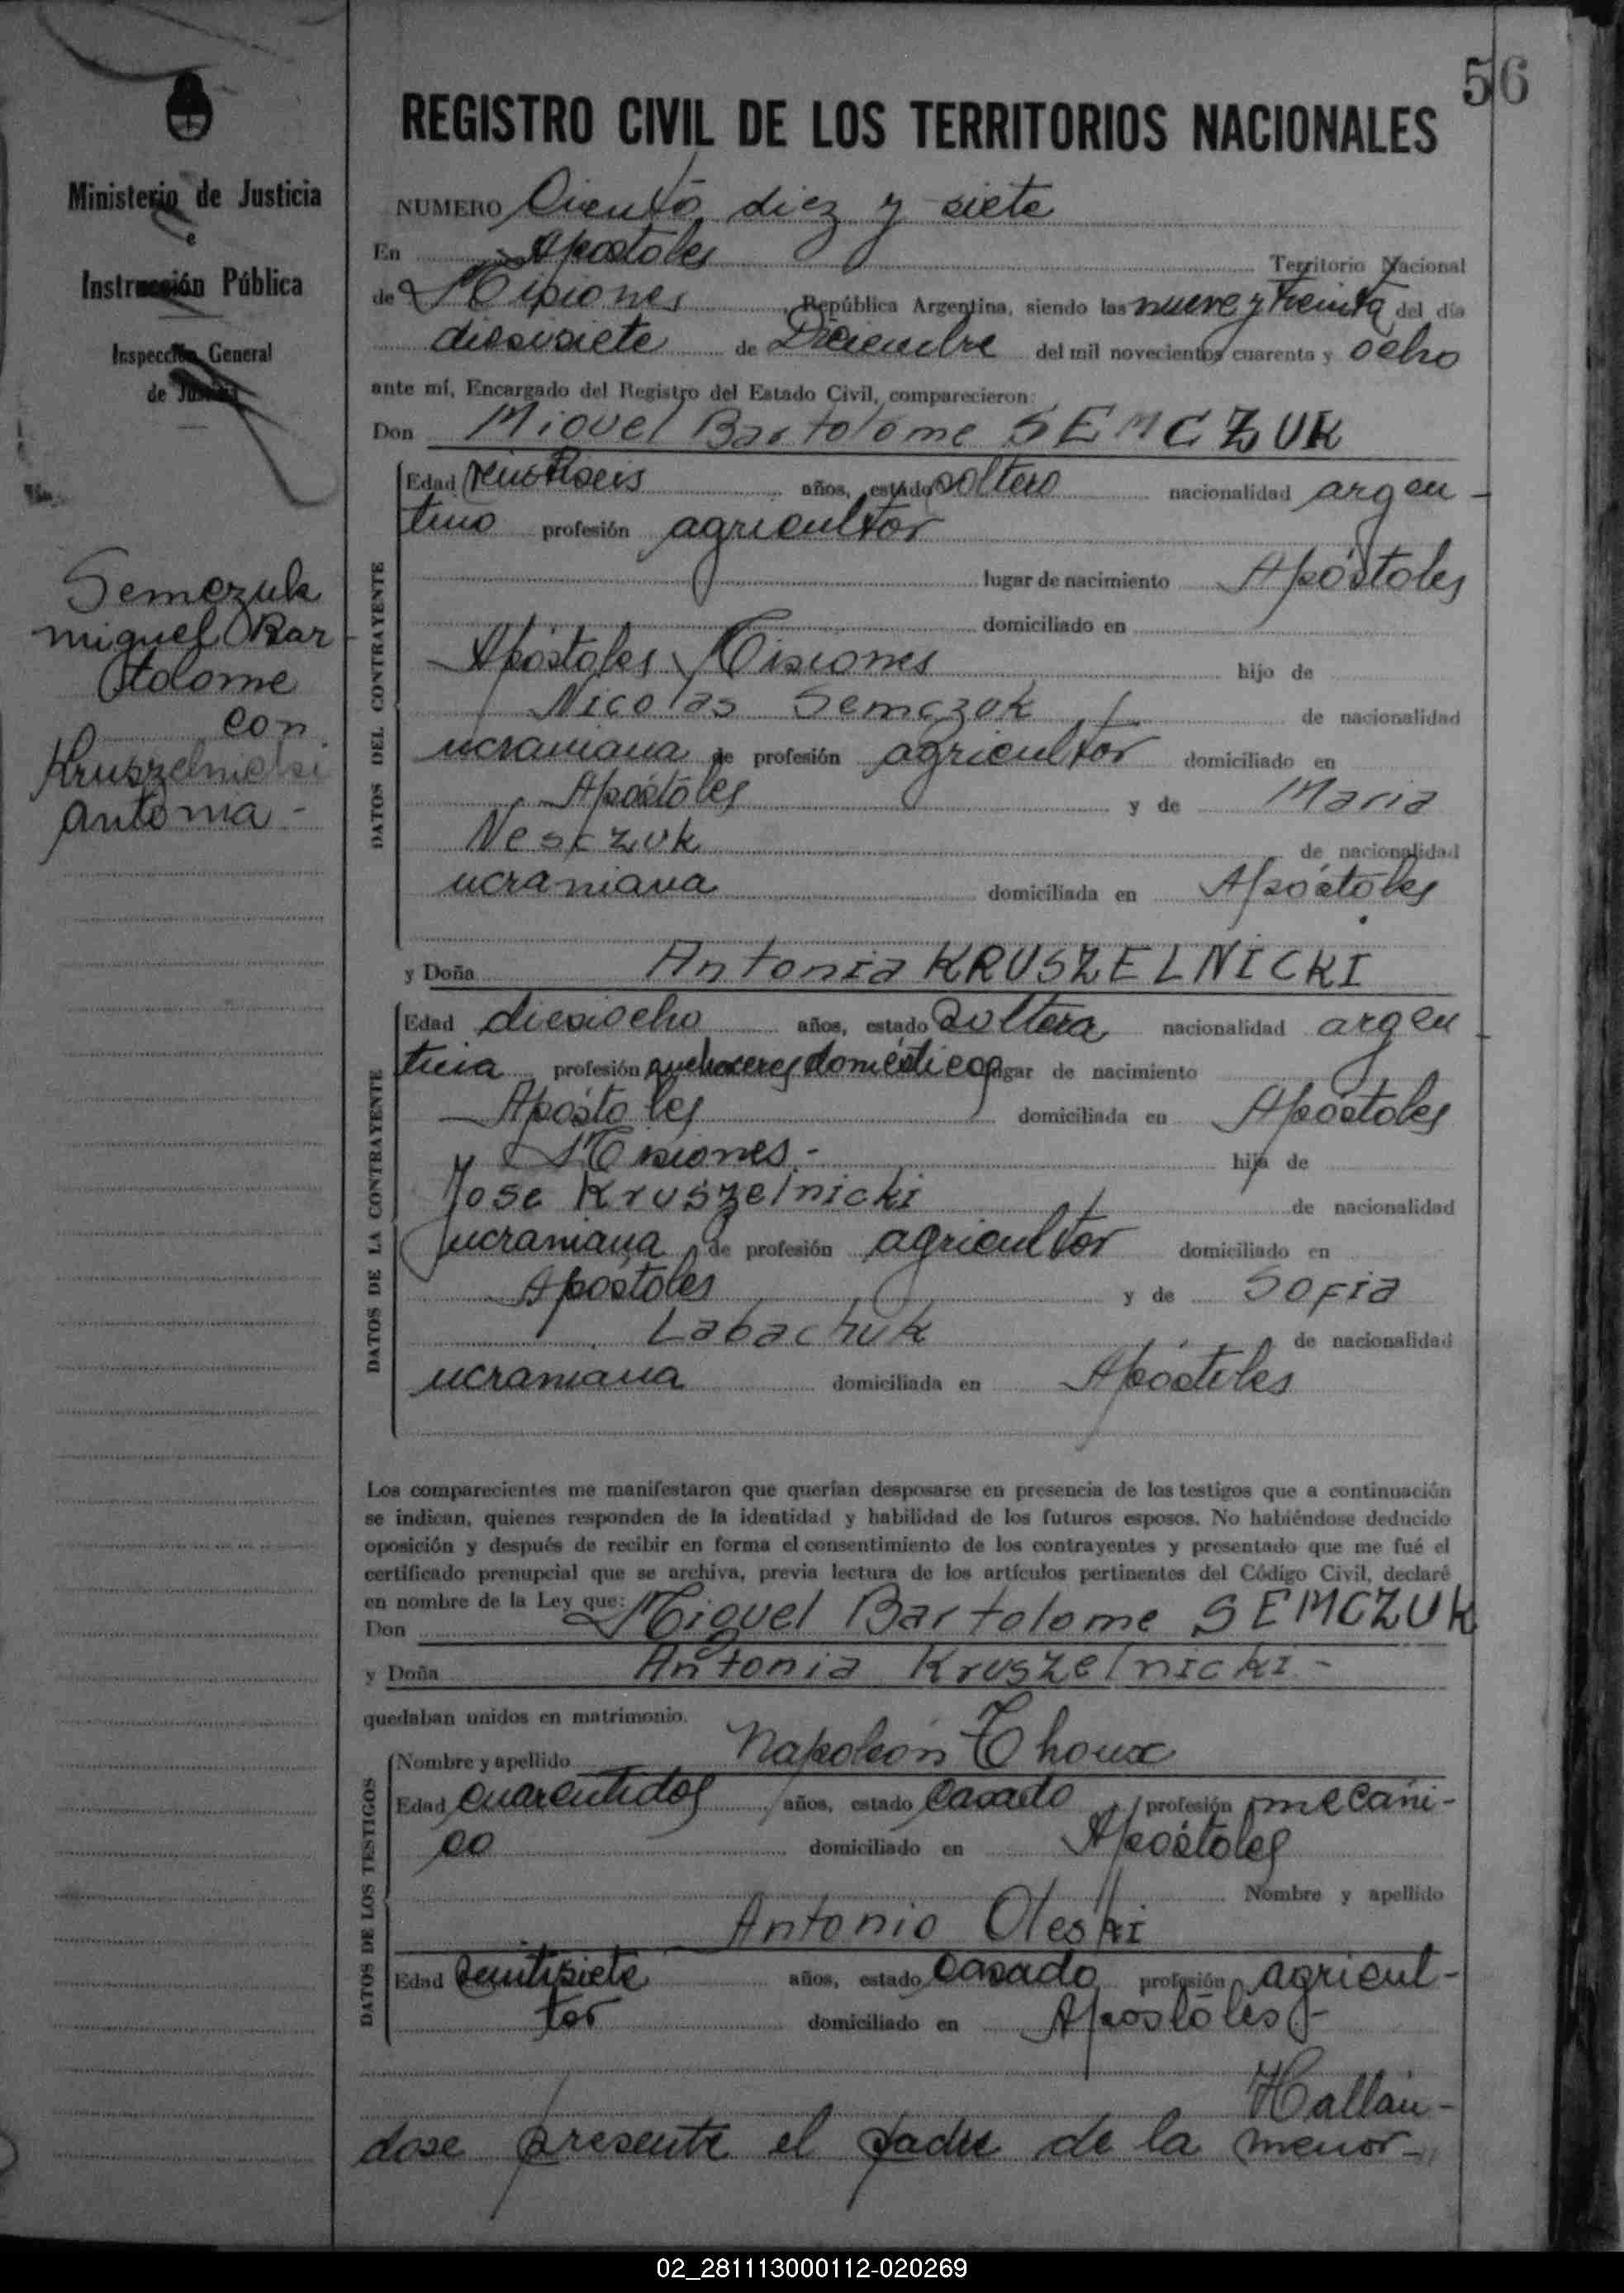 56
Ministerio de Justicia
e
Instrucción Pública
Inspección General
de Justicia
Semczuk
Miguel Bar
tolome
con
Kruszelnicki
Antonia -
REGISTRO CIVIL DE LOS TERRITORIOS NACIONALES
NUMERO Ciento diez y siete
En Apostoles Territorio Nacional
de Misiones, República Argentina, siendo las nueve y treinta del día
diesisiete de Diciembre del mil novecientos cuarenta y ocho
ante mí, Encargado del Registro del Estado Civil, comparecieron:
Don Miguel Bartolome SEMCZUK
DATOS DEL CONTRAYENTE
Edad veintiseis años, estado soltero nacionalidad argen-
tino profesión agricultor
lugar de nacimiento Apóstoles
domiciliado en
Apóstoles Misiones hijo de
Nicolas Semczuk de nacionalidad
ucraniana de profesión agricultor domiciliado en
Apóstoles y de Maria
Nesczuk de nacionalidad
ucraniana domiciliada en Apóstoles
y Doña Antonia KRUSZELNICKI
DATOS DE LA CONTRAYENTE
Edad diesiocho años, estado soltera nacionalidad argen
tina profesión quehaceres domésticos lugar de nacimiento
Apóstoles domiciliada en Apóstoles
Misiones.- hija de
Jose Kruszelnicki de nacionalidad
ucraniana de profesión agricultor domiciliado en
Apóstoles y de Sofia
Labachuk de nacionalidad
ucraniana domiciliada en Apóstoles
Los comparecientes me manifestaron que querían desposarse en presencia de los testigos que a continuación
se indican, quienes responden de la identidad y habilidad de los futuros esposos. No habiéndose deducido
oposición y después de recibir en forma el consentimiento de los contrayentes y presentado que me fué el
certificado prenupcial que se archiva, previa lectura de los artículos pertinentes del Código Civil, declaré
en nombre de la Ley que:
Don Miguel Bartolome SEMCZUK
y Doña Antonia Kruszelnicki -
quedaban unidos en matrimonio.
DATOS DE LOS TESTIGOS
Nombre y apellido Napoleón Thoux
Edad cuarentidos años, estado casado profesión mecáni-
co domiciliado en Apóstoles
Nombre y apellido
Antonio Oleski
Edad veintisiete años, estado casado profesión agricul-
tor domiciliado en Apostoles -
Hallán-
dose presente el padre de la menor-
02_281113000112-020269